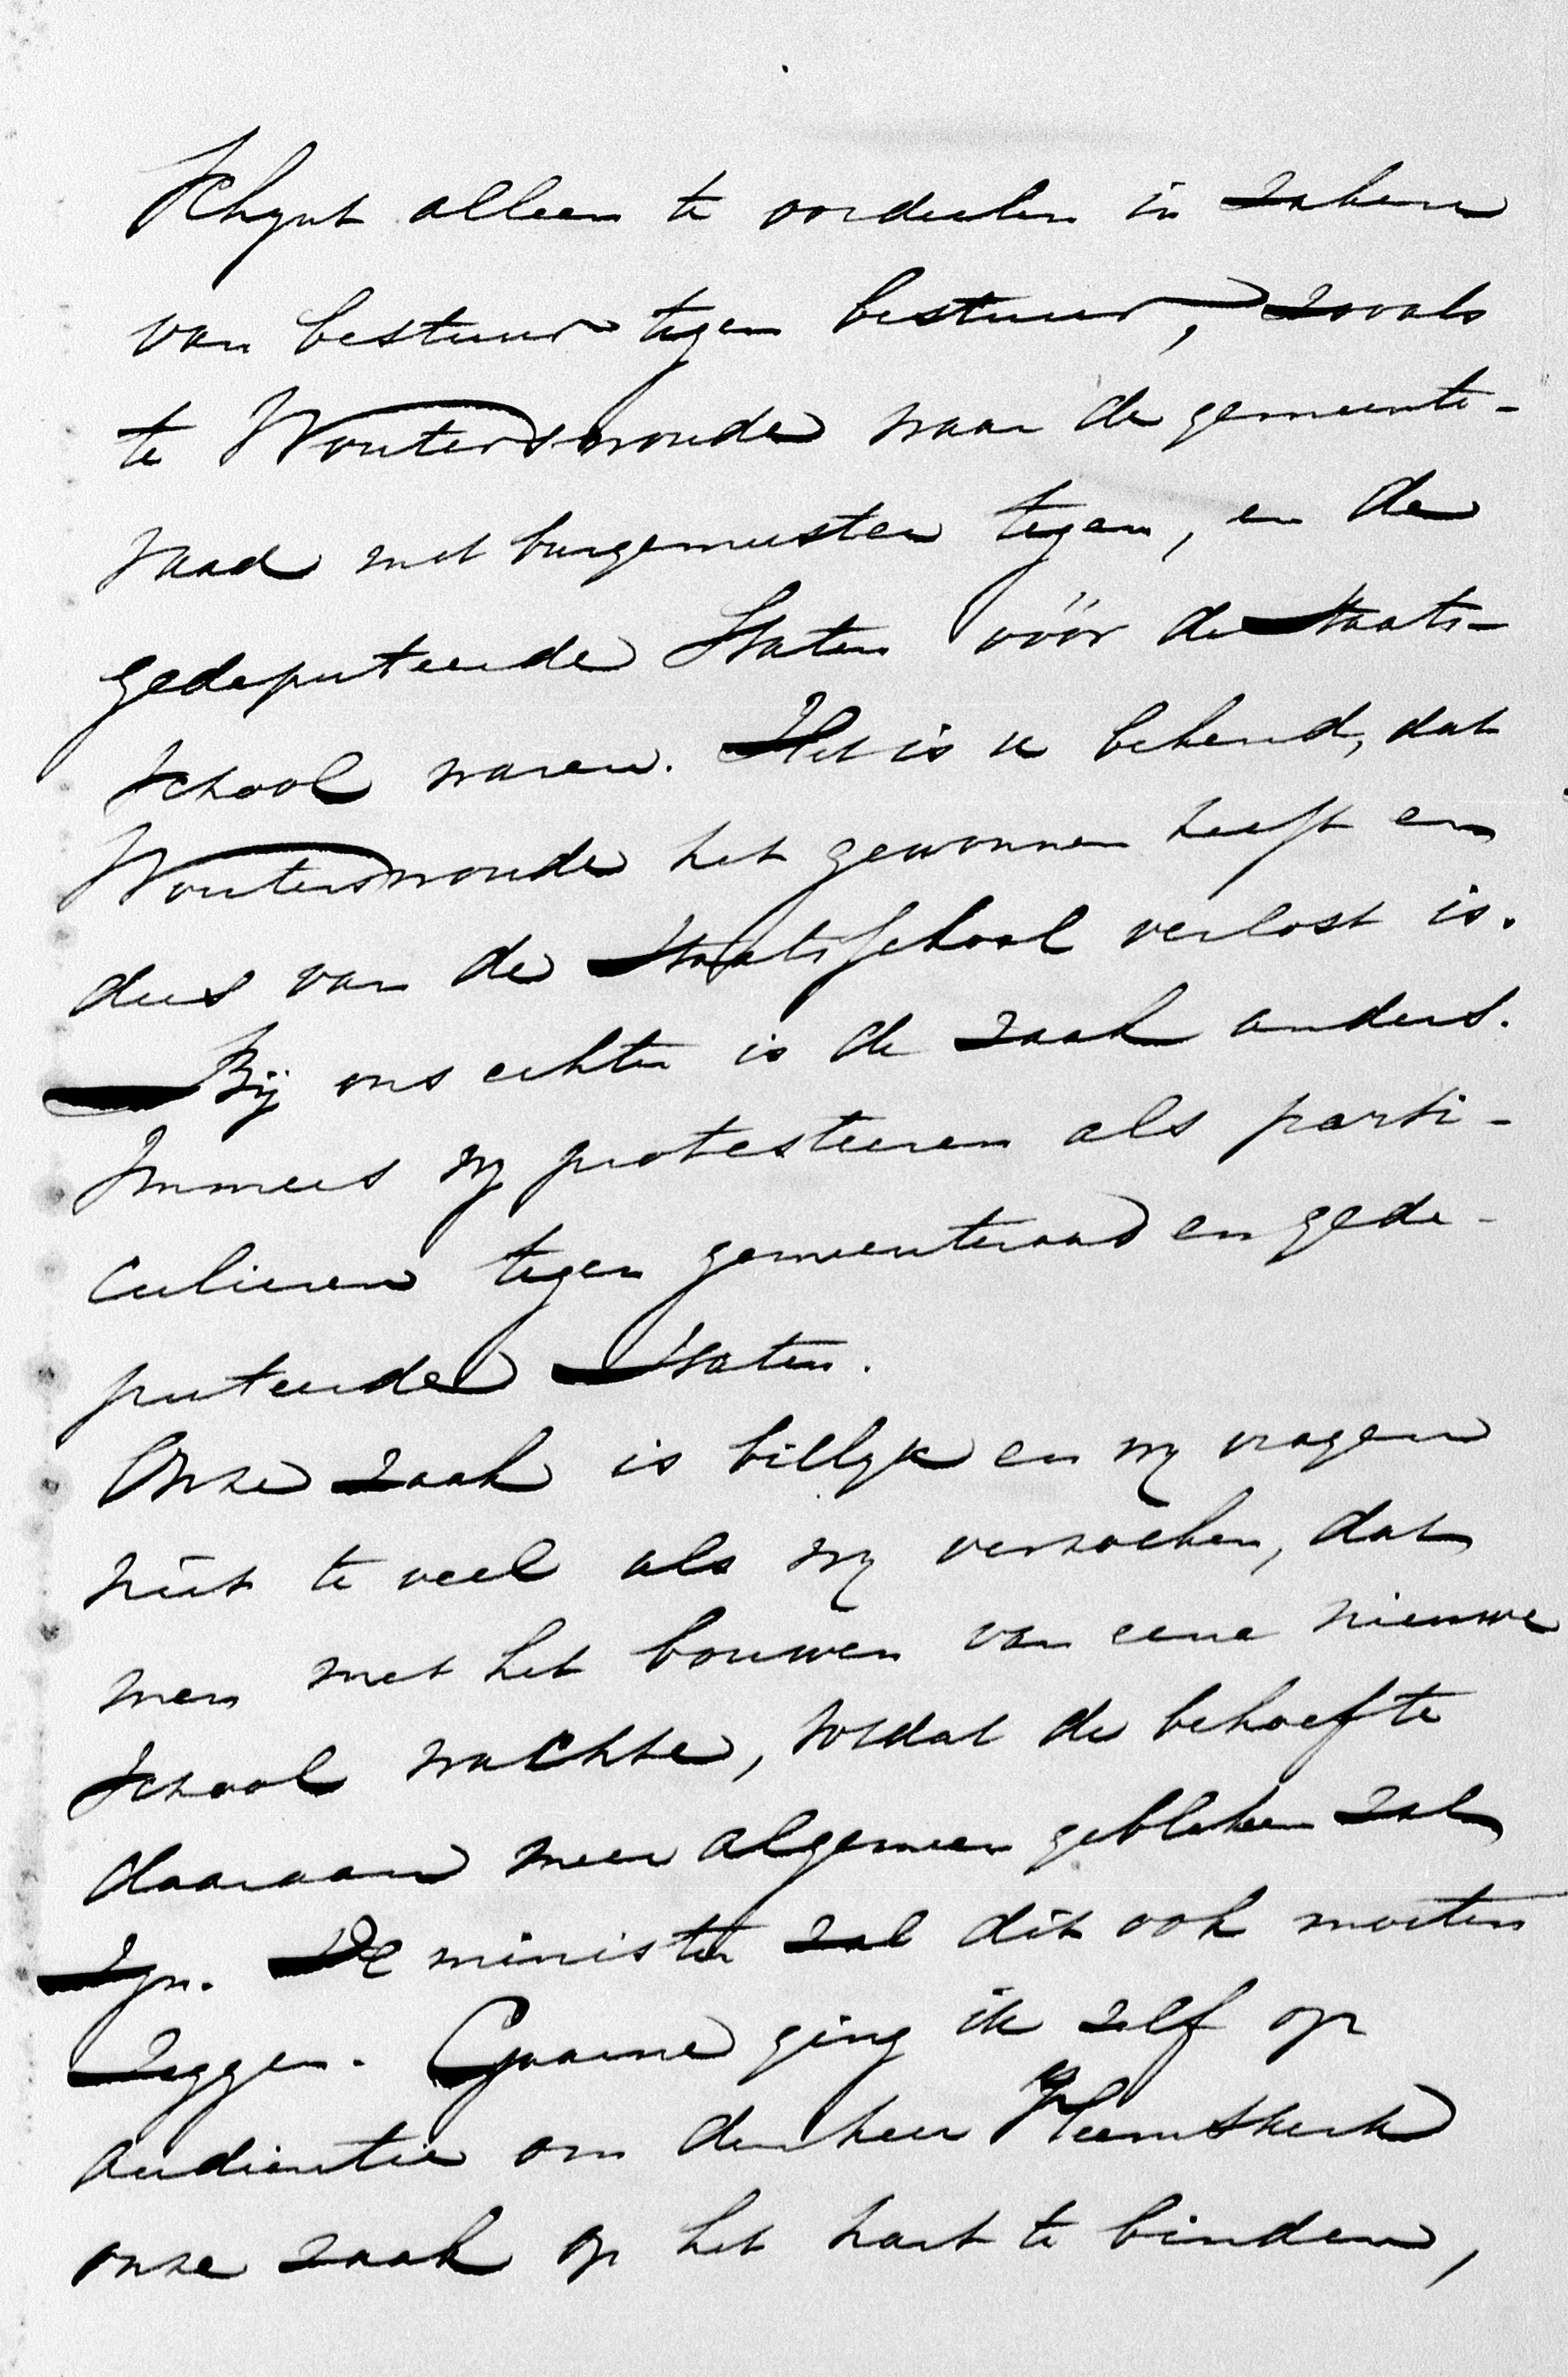 schynt alleen te oordeelen in zaken
van bestuur tegen bestuur, zooals
te Wouterswoude waar de gemeente-
raad met burgemeester tegen, en de
gedeputeerde Staten vóór de Staats-
school waren. Het is u bekend, dat
Wouterswoude het gewonnen heeft en
dus van de Staatsschool verlost is.
Bij ons echter is de zaak anders.
Immers wy protesteeren als parti-
culieren tegen gemeenteraad en gede-
puteerde Staten.
Onze zaak is billyk en wy vragen
niet te veel als wy verzoeken, dat
men met het bouwen van eene nieuwe
school wachte, totdat de behoefte
daaraan meer algemeen gebleken zal
zyn. De minister zal dit ook moeten
zeggen. Gaarne ging ik zelf op
audientie om den heer Heemskerk
onze zaak op het hart te binden,